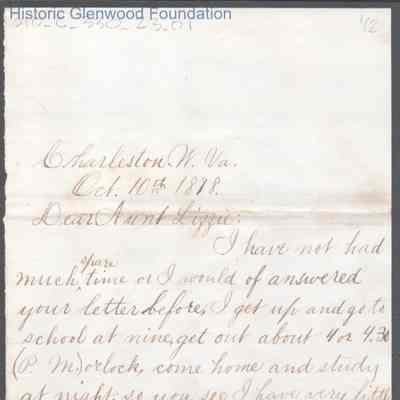 Historic Glenwood Foundation
12
Charleston, W. Va.
Oct. 10th 1898.
Dear Aunt Lizzie:
I have not had
much spare time or I would of answered
your letter before, I get up and go to
school at nine, get out about 4 or 4.30
(P. M.) oclock, come home and study
at night; so you see I have very little